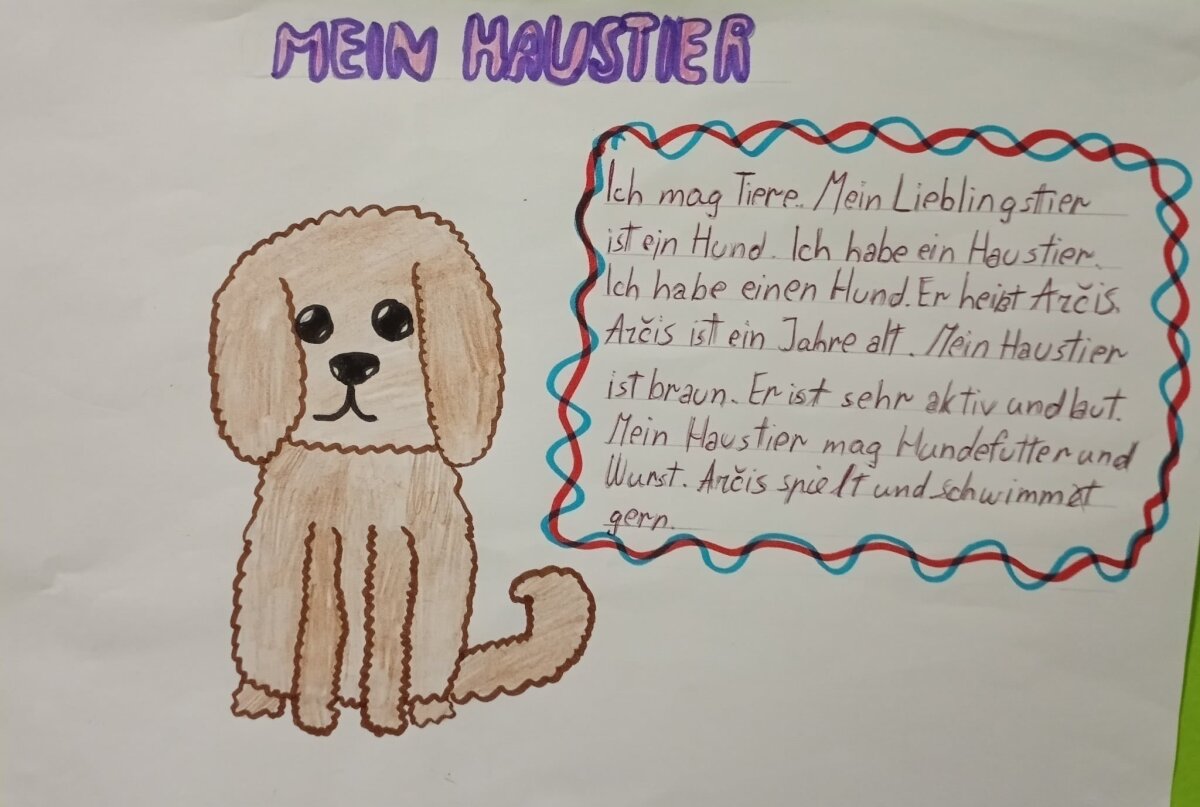 MEIN HAUSTIER
Ich mag Tiere. Mein Lieblingstier
ist ein Hund. Ich habe ein Haustier.
Ich habe einen Hund. Er heißt Arčis.
Arčis ist ein Jahre alt. Mein Haustier
ist braun. Er ist sehr aktiv und laut.
Mein Haustier mag Hundefutter und
Wurst. Arčis spielt und schwimmt
gern.